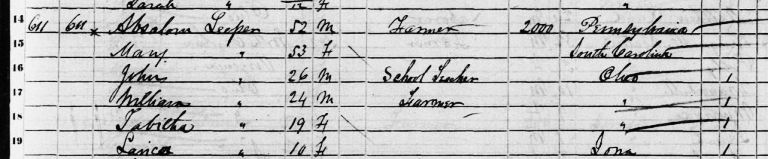 Sarah " 12 F
14 611 611 x Absalom Leeper 52 M Farmer 2000 Pennsylvania
15 Mary " 53 F South Carolina
16 John " 26 M School Teacher Ohio 1
17 William " 24 M Farmer " 1
18 Tabitha " 19 F " 1
19 " 10 F Iowa 1